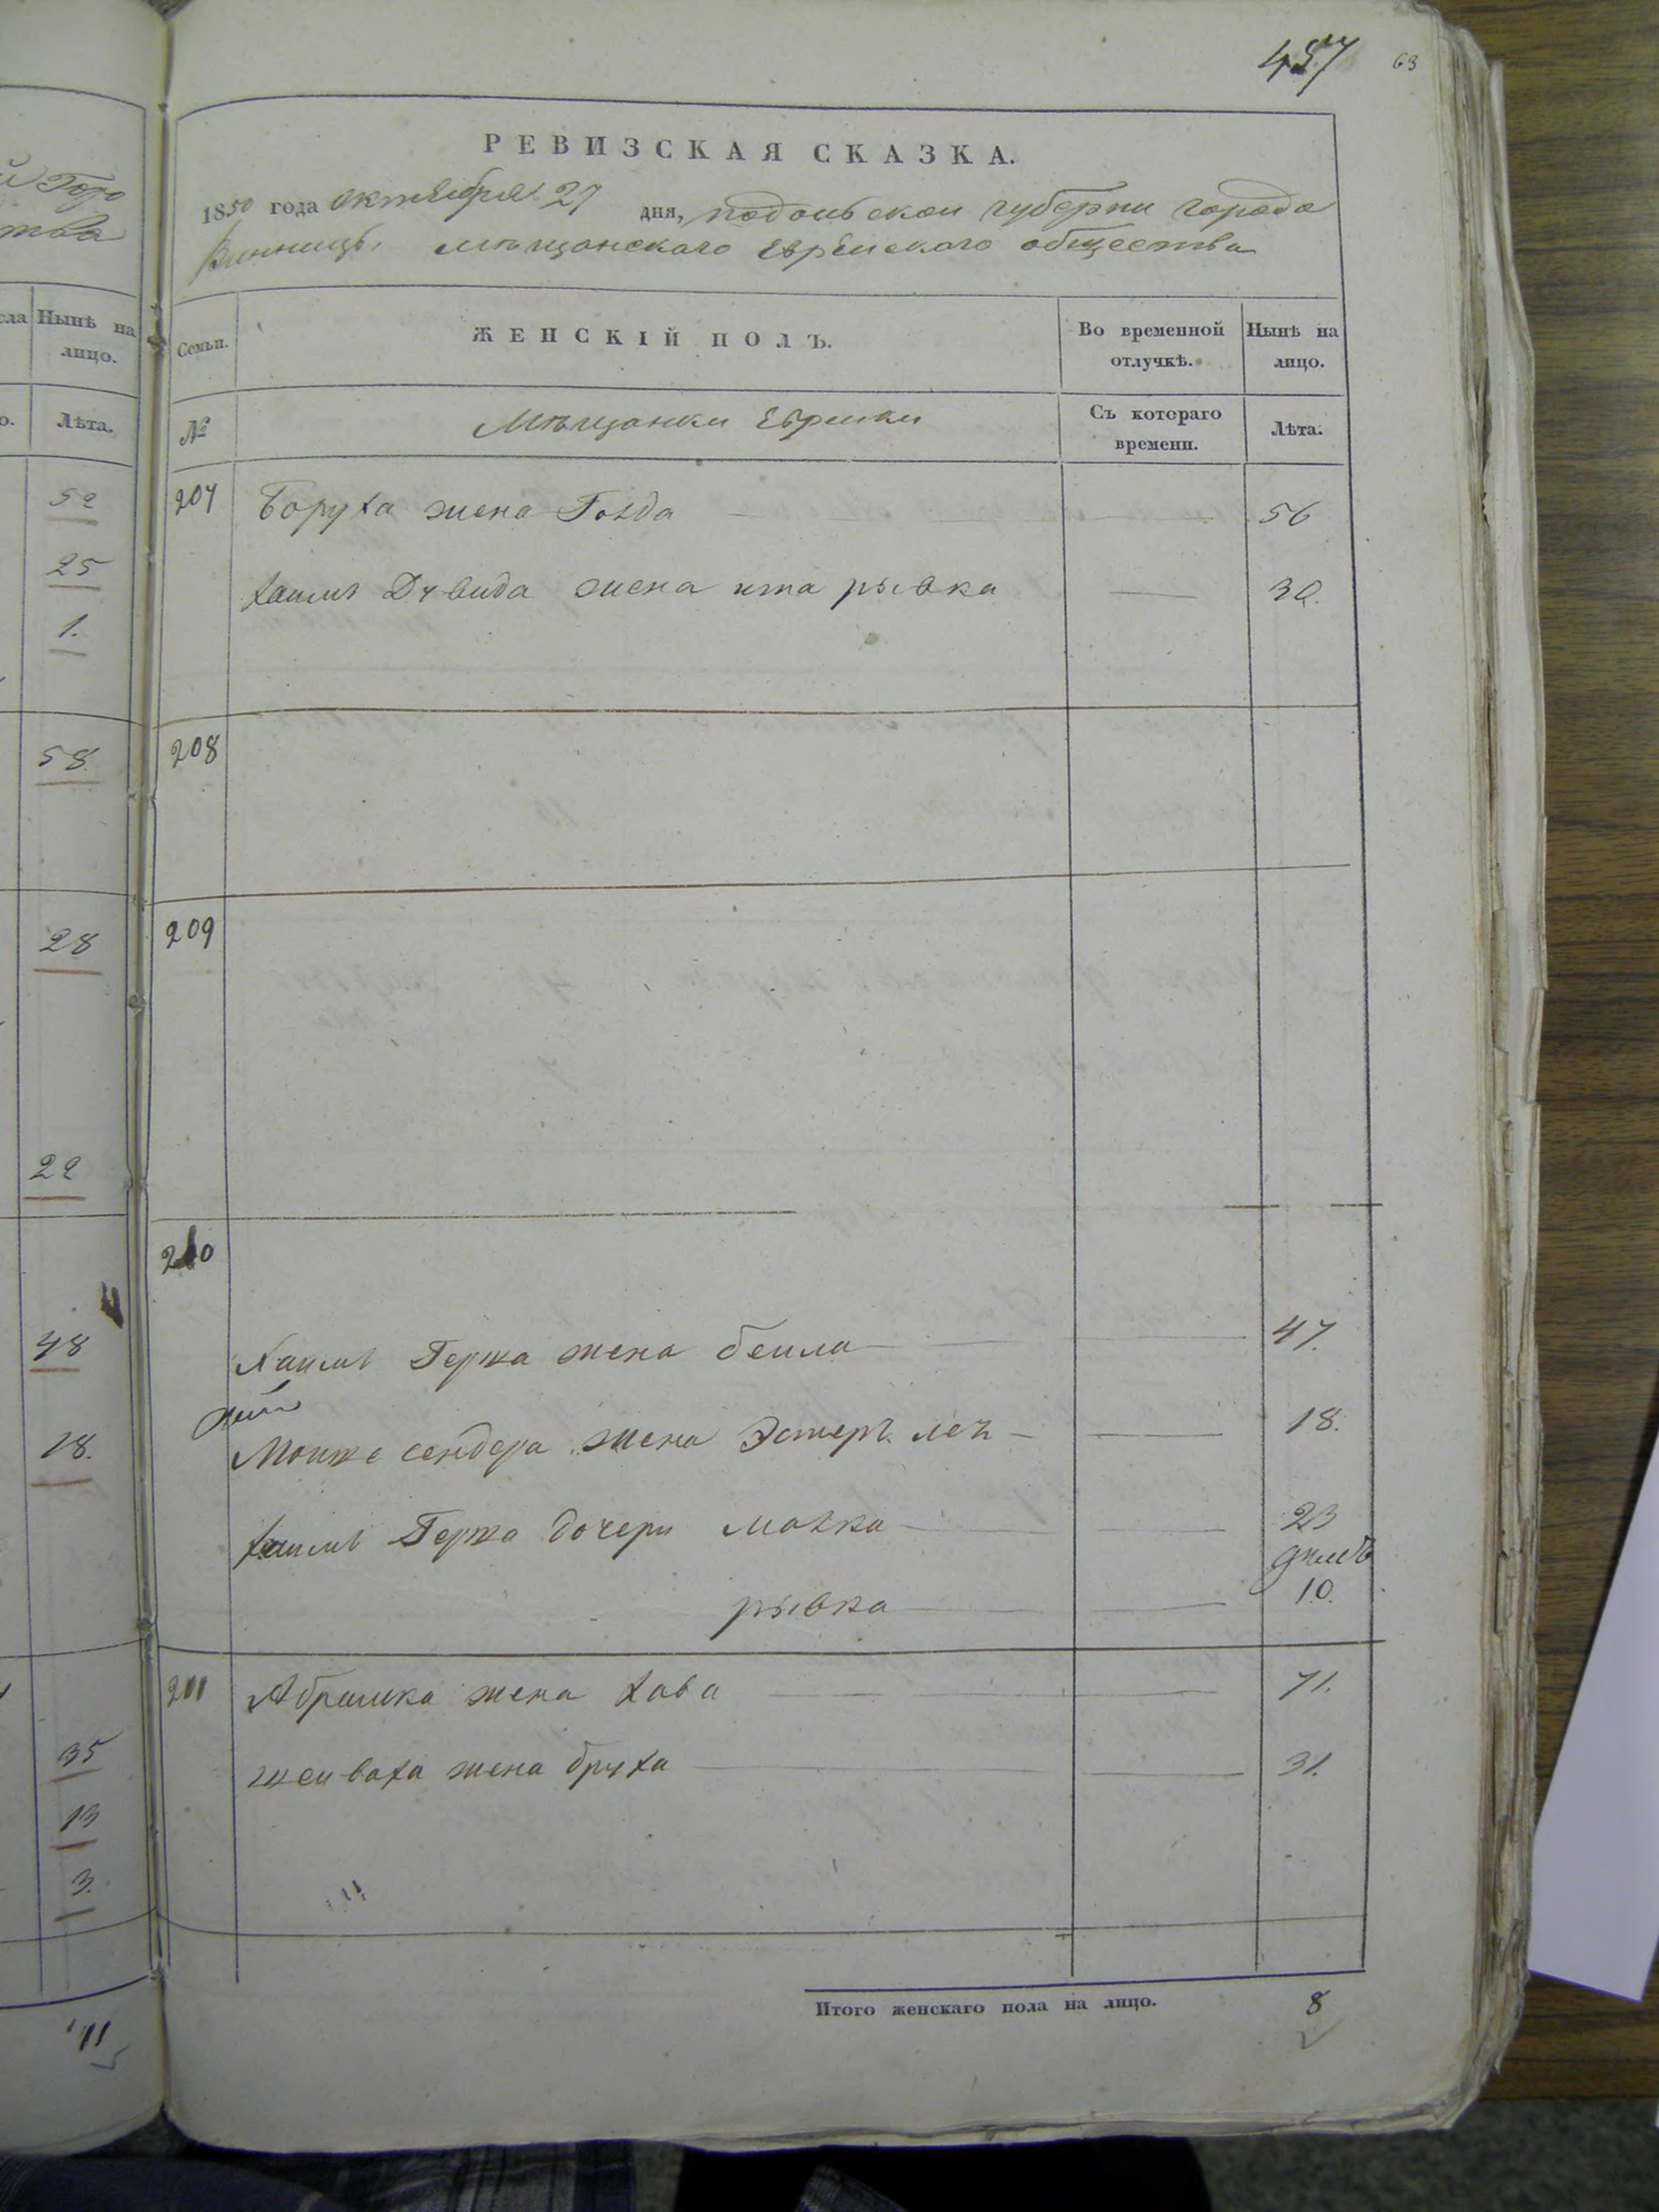 457 63
РЕВИЗСКАЯ СКАЗКА.
1850 года октября 27 дня, подольской губернии города
Винницы мѣщанскаго Еврейскаго общества
Семьи. ЖЕНСКІЙ ПОЛЪ. Во временной отлучкѣ. Нынѣ на лицо.
№ Мѣщанки Еврейки Съ котораго времени. Лѣта.
207 Боруха жена Голда 56
Хаимъ Дувида жена ита рывка 30.
208
209
210
Хаимъ Герша жена беила 47.
Мошке сендера жена Эстеръ лея 18.
Хаимъ Герша дочери Малка 23
рывка 10.
211 Абрамка жена Хава 71.
жена бруха 31.
Итого женскаго пола на лицо. 8
Нынѣ на лицо.
Лѣта.
52
25
1.
58
28
22
48
18.
35
13
3.
11